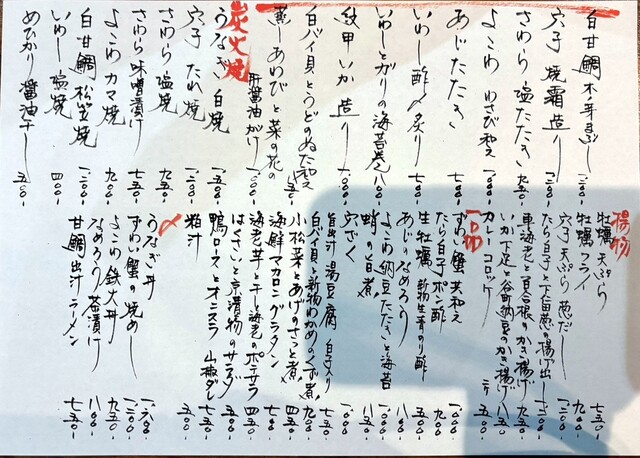 白甘鯛木の芽蒸し 一三〇〇-
穴子 焼霜造り 一二〇〇-
さわら 塩たたき 一二〇〇-
よこわ わさび和え 一一〇〇-
あじたたき 九〇〇-
いわし酢〆炙り 七五〇-
いわしとガリの海苔巻 八〇〇-
紋甲いか 造り 一〇〇〇-
白バイ貝とうどのぬた和え 一〇五〇-
蒸しあわびと菜の花の
肝醤油がけ 一八〇〇-
炭火焼
うなぎ 白焼 一五〇〇-
穴子 たれ焼 一二〇〇-
さわら 塩焼 九五〇-
さわら味噌漬け
よこわ カマ焼 九〇〇-
白甘鯛 松笠焼 一二〇〇-
いわし 塩焼 四〇〇-
めひかり 醤油干し 五〇〇-
揚物
牡蠣 天ぷら 七五〇-
牡蠣 フライ
穴子 天ぷら 葱だし 一二〇〇-
たら白子と下仁田葱の揚げ出し 一二〇〇-
車海老と百合根のかき揚げ
いか下足と谷町納豆のかき揚げ 八五〇-
カレーコロッケ
一品
ずわい蟹 黄和え 一〇〇〇-
たら白子ポン酢
生牡蠣 新物生青のり酢
あじなめろう
よこわ納豆たたきと海苔 八五〇-
蛸の旨煮
穴ざく 一〇〇〇-
旨出汁湯豆腐 白魚入り 七五〇-
白バイ貝と新物わかめのくず煮 九〇〇-
小松菜とあげのさっと煮 四五〇-
海鮮マカロニグラタン 九〇〇-
海老芋と干し海老のポテサラ 四五〇-
はくさいと京漬物のサラダ 七五〇-
鴨ロースとオニスラ 山椒ダレ 九五〇-
粕汁 五五〇-
〆
うなぎ丼 一六〇〇-
ずわい蟹の焼めし 一二〇〇-
よこわ鉄火丼 九五〇-
なめろう茶漬け 八〇〇-
甘鯛出汁ラーメン 七五〇-